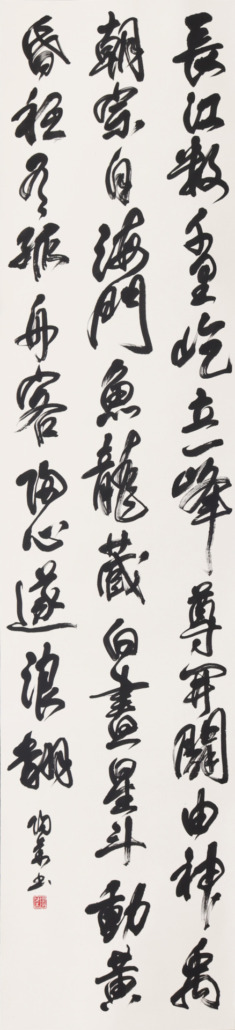 長江數千里屹立一峰尊開闢由神禹
朝宗自海門魚龍藏白晝星斗動黃
昏祇有孤舟客歸心逐浪翻
書